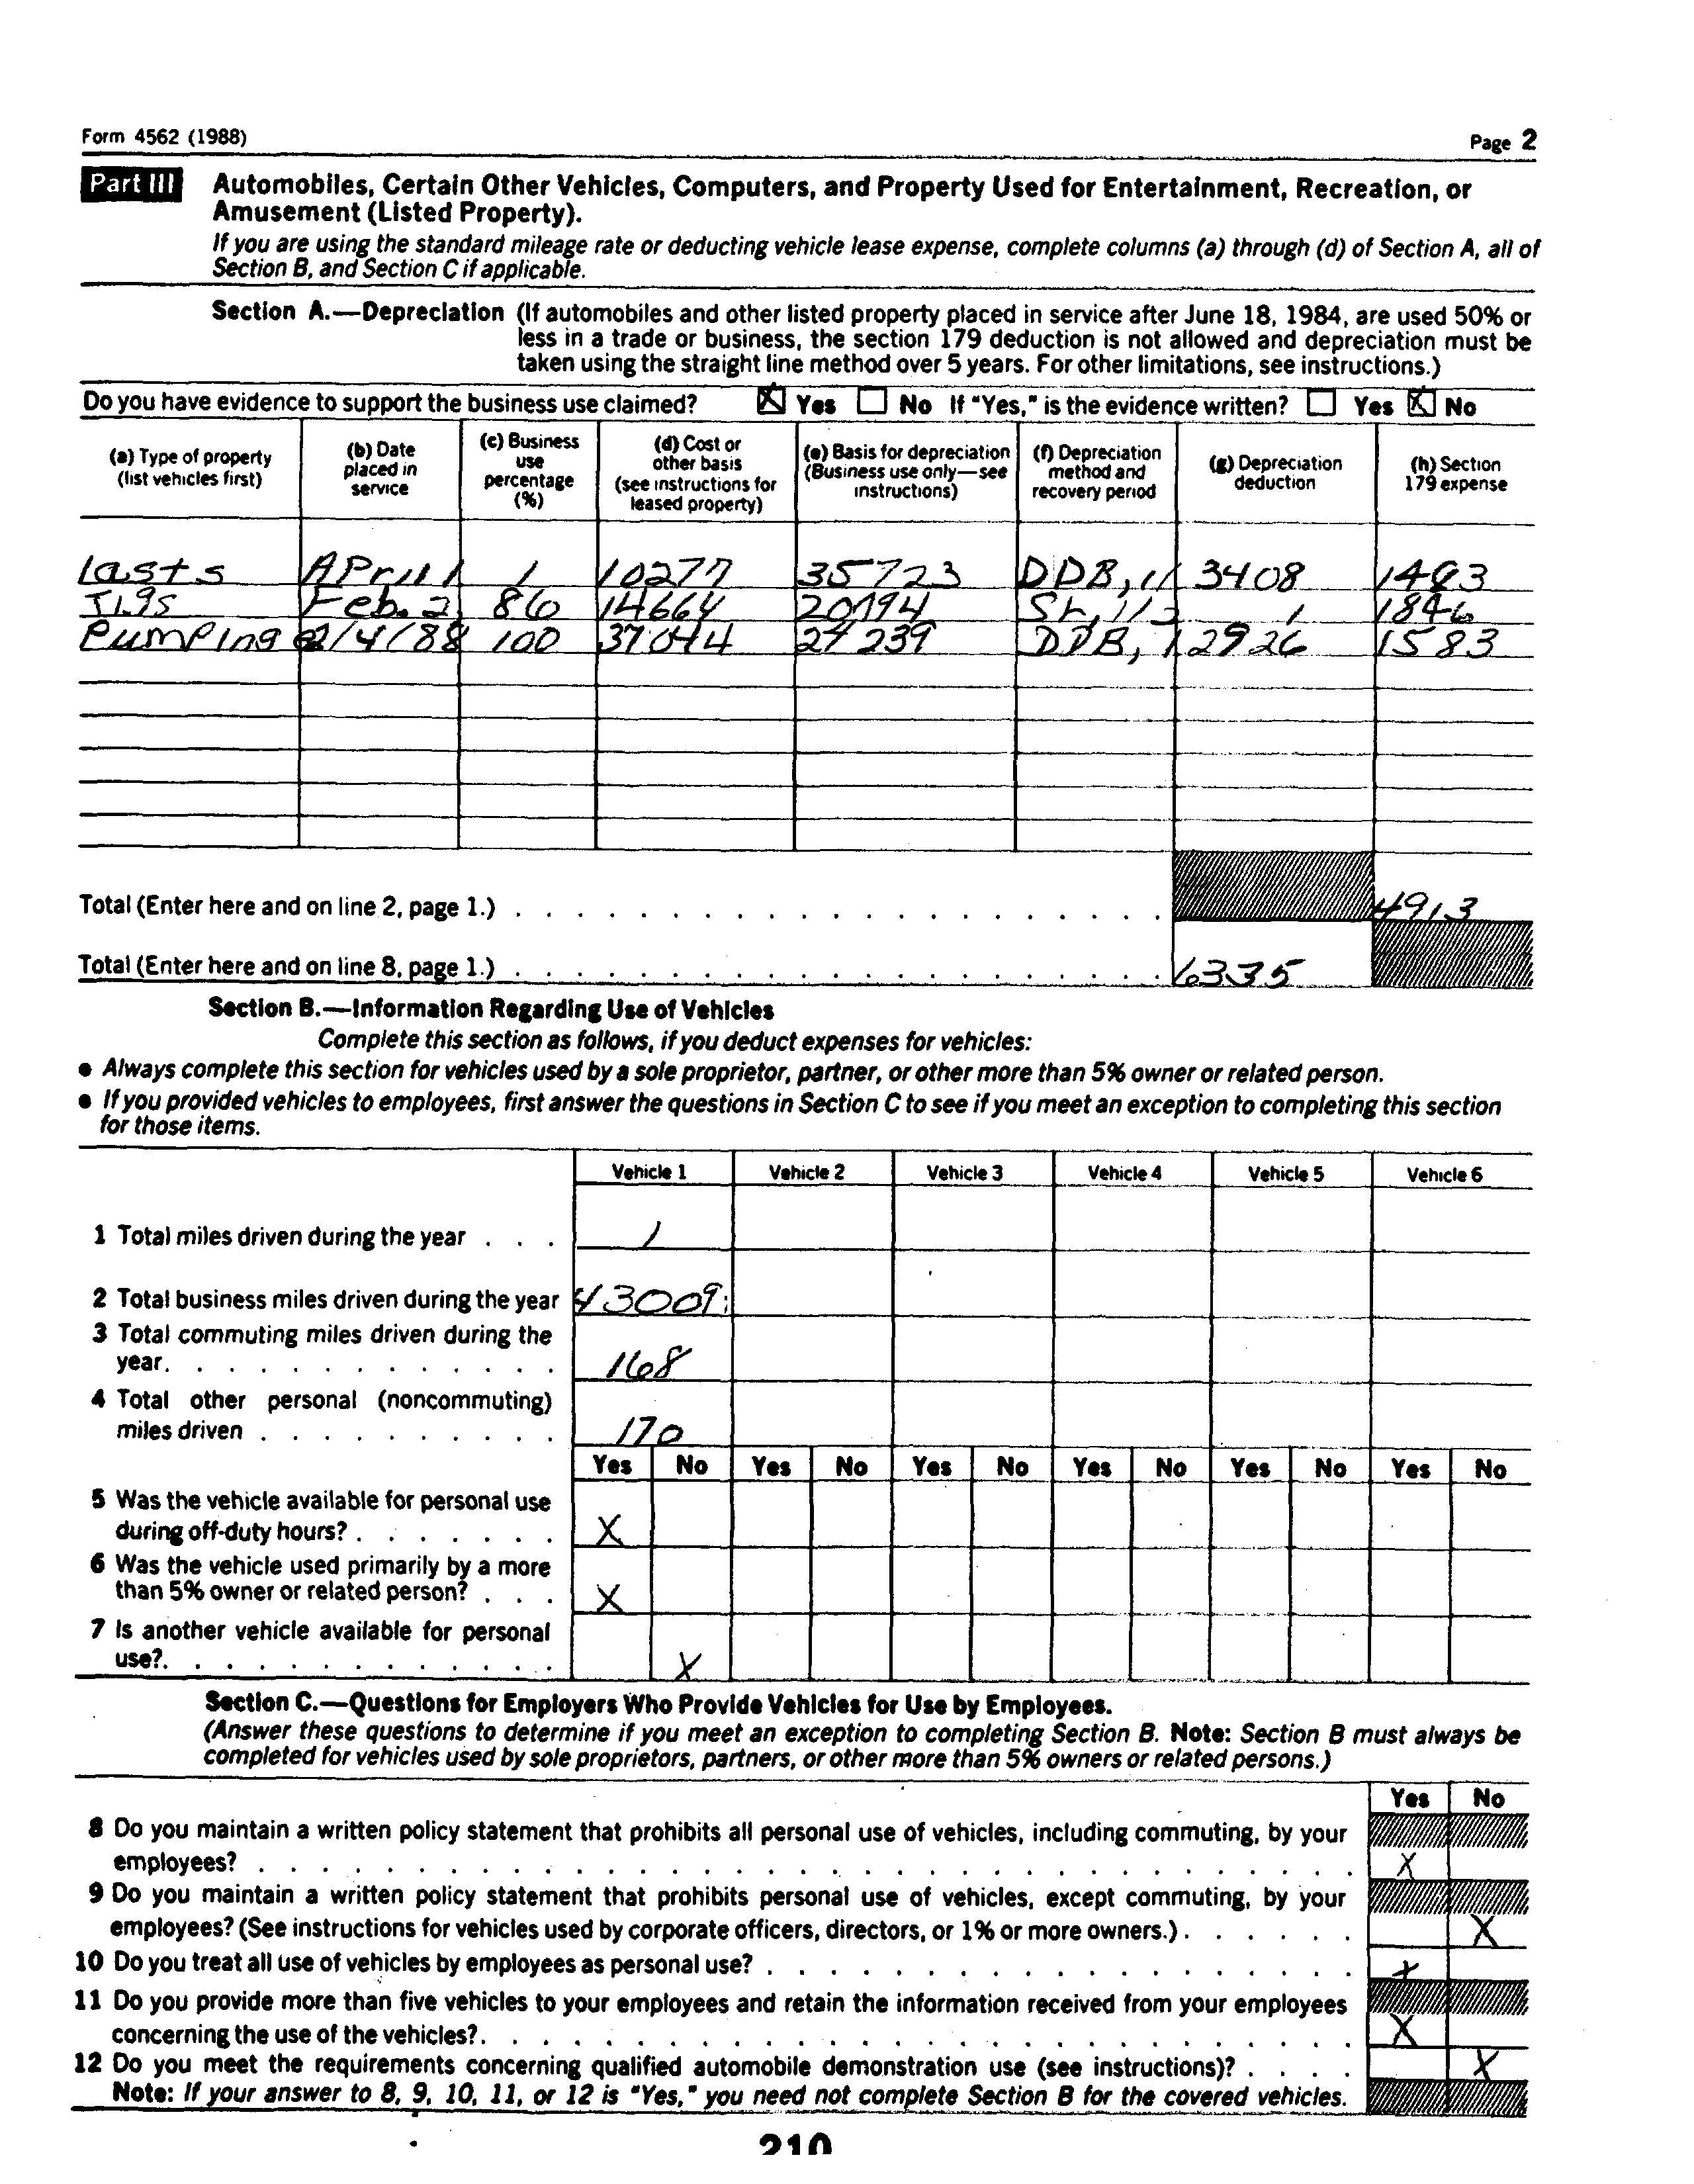 Form 4562 (1988)
Page 2
Part III Automobiles, Certain Other Vehicles, Computers, and Property Used for Entertainment, Recreation, or
Amusement (Listed Property).
If you are using the standard mileage rate or deducting vehicle lease expense, complete columns (a) through (d) of Section A, all of
Section B, and Section C if applicable.
Section A.—Depreciation (If automobiles and other listed property placed in service after June 18, 1984, are used 50% or
less in a trade or business, the section 179 deduction is not allowed and depreciation must be
taken using the straight line method over 5 years. For other limitations, see instructions.)
Do you have evidence to support the business use claimed? X Yes No If "Yes," is the evidence written? Yes X No
(a) Type of property
(list vehicles first)
(b) Date
placed in
service
(c) Business
use
percentage
(%)
(d) Cost or
other basis
(see instructions for
leased property)
(e) Basis for depreciation
(Business use only—see
instructions)
(f) Depreciation
method and
recovery period
(g) Depreciation
deduction
(h) Section
179 expense
Lasts April 1 1 10277 35723 DDB, 11 3408 1483
Feb. 2, 86 14664 20194 1 1846
Pumping 2/4/88 100 37044 27239 DDB, 1 2926 1583
Total (Enter here and on line 2, page 1.) 4913
Total (Enter here and on line 8, page 1.) 6335
Section B.—Information Regarding Use of Vehicles
Complete this section as follows, if you deduct expenses for vehicles:
● Always complete this section for vehicles used by a sole proprietor, partner, or other more than 5% owner or related person.
● If you provided vehicles to employees, first answer the questions in Section C to see if you meet an exception to completing this section
for those items.
Vehicle 1 Vehicle 2 Vehicle 3 Vehicle 4 Vehicle 5 Vehicle 6
1 Total miles driven during the year . . . 1
2 Total business miles driven during the year 43009
3 Total commuting miles driven during the
year. . . . . . . . . . . . . 168
4 Total other personal (noncommuting)
miles driven . . . . . . . . . . 170
Yes No Yes No Yes No Yes No Yes No Yes No
5 Was the vehicle available for personal use
during off-duty hours? . . . . . . . X
6 Was the vehicle used primarily by a more
than 5% owner or related person? . . . X
7 Is another vehicle available for personal
use?. . . . . . . . . . . . . X
Section C.—Questions for Employers Who Provide Vehicles for Use by Employees.
(Answer these questions to determine if you meet an exception to completing Section B. Note: Section B must always be
completed for vehicles used by sole proprietors, partners, or other more than 5% owners or related persons.)
Yes No
8 Do you maintain a written policy statement that prohibits all personal use of vehicles, including commuting, by your
employees? X
9 Do you maintain a written policy statement that prohibits personal use of vehicles, except commuting, by your
employees? (See instructions for vehicles used by corporate officers, directors, or 1% or more owners.) . . . . . . X
10 Do you treat all use of vehicles by employees as personal use? X
11 Do you provide more than five vehicles to your employees and retain the information received from your employees
concerning the use of the vehicles?. X
12 Do you meet the requirements concerning qualified automobile demonstration use (see instructions)? . . . . X
Note: If your answer to 8, 9, 10, 11, or 12 is "Yes," you need not complete Section B for the covered vehicles.
210